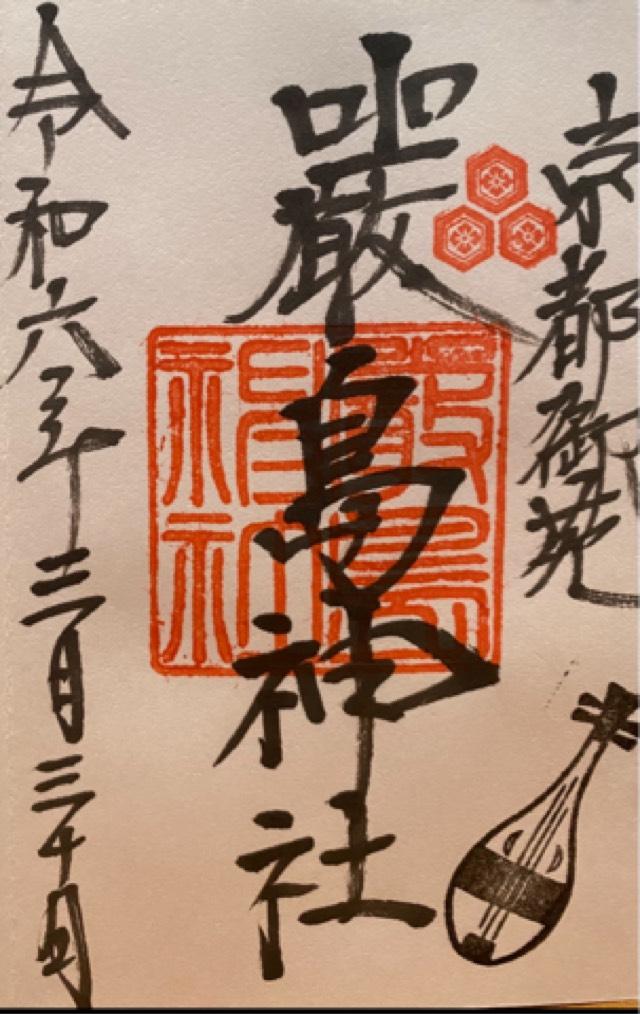 京都御苑
嚴島神社
令和六年三月三十日